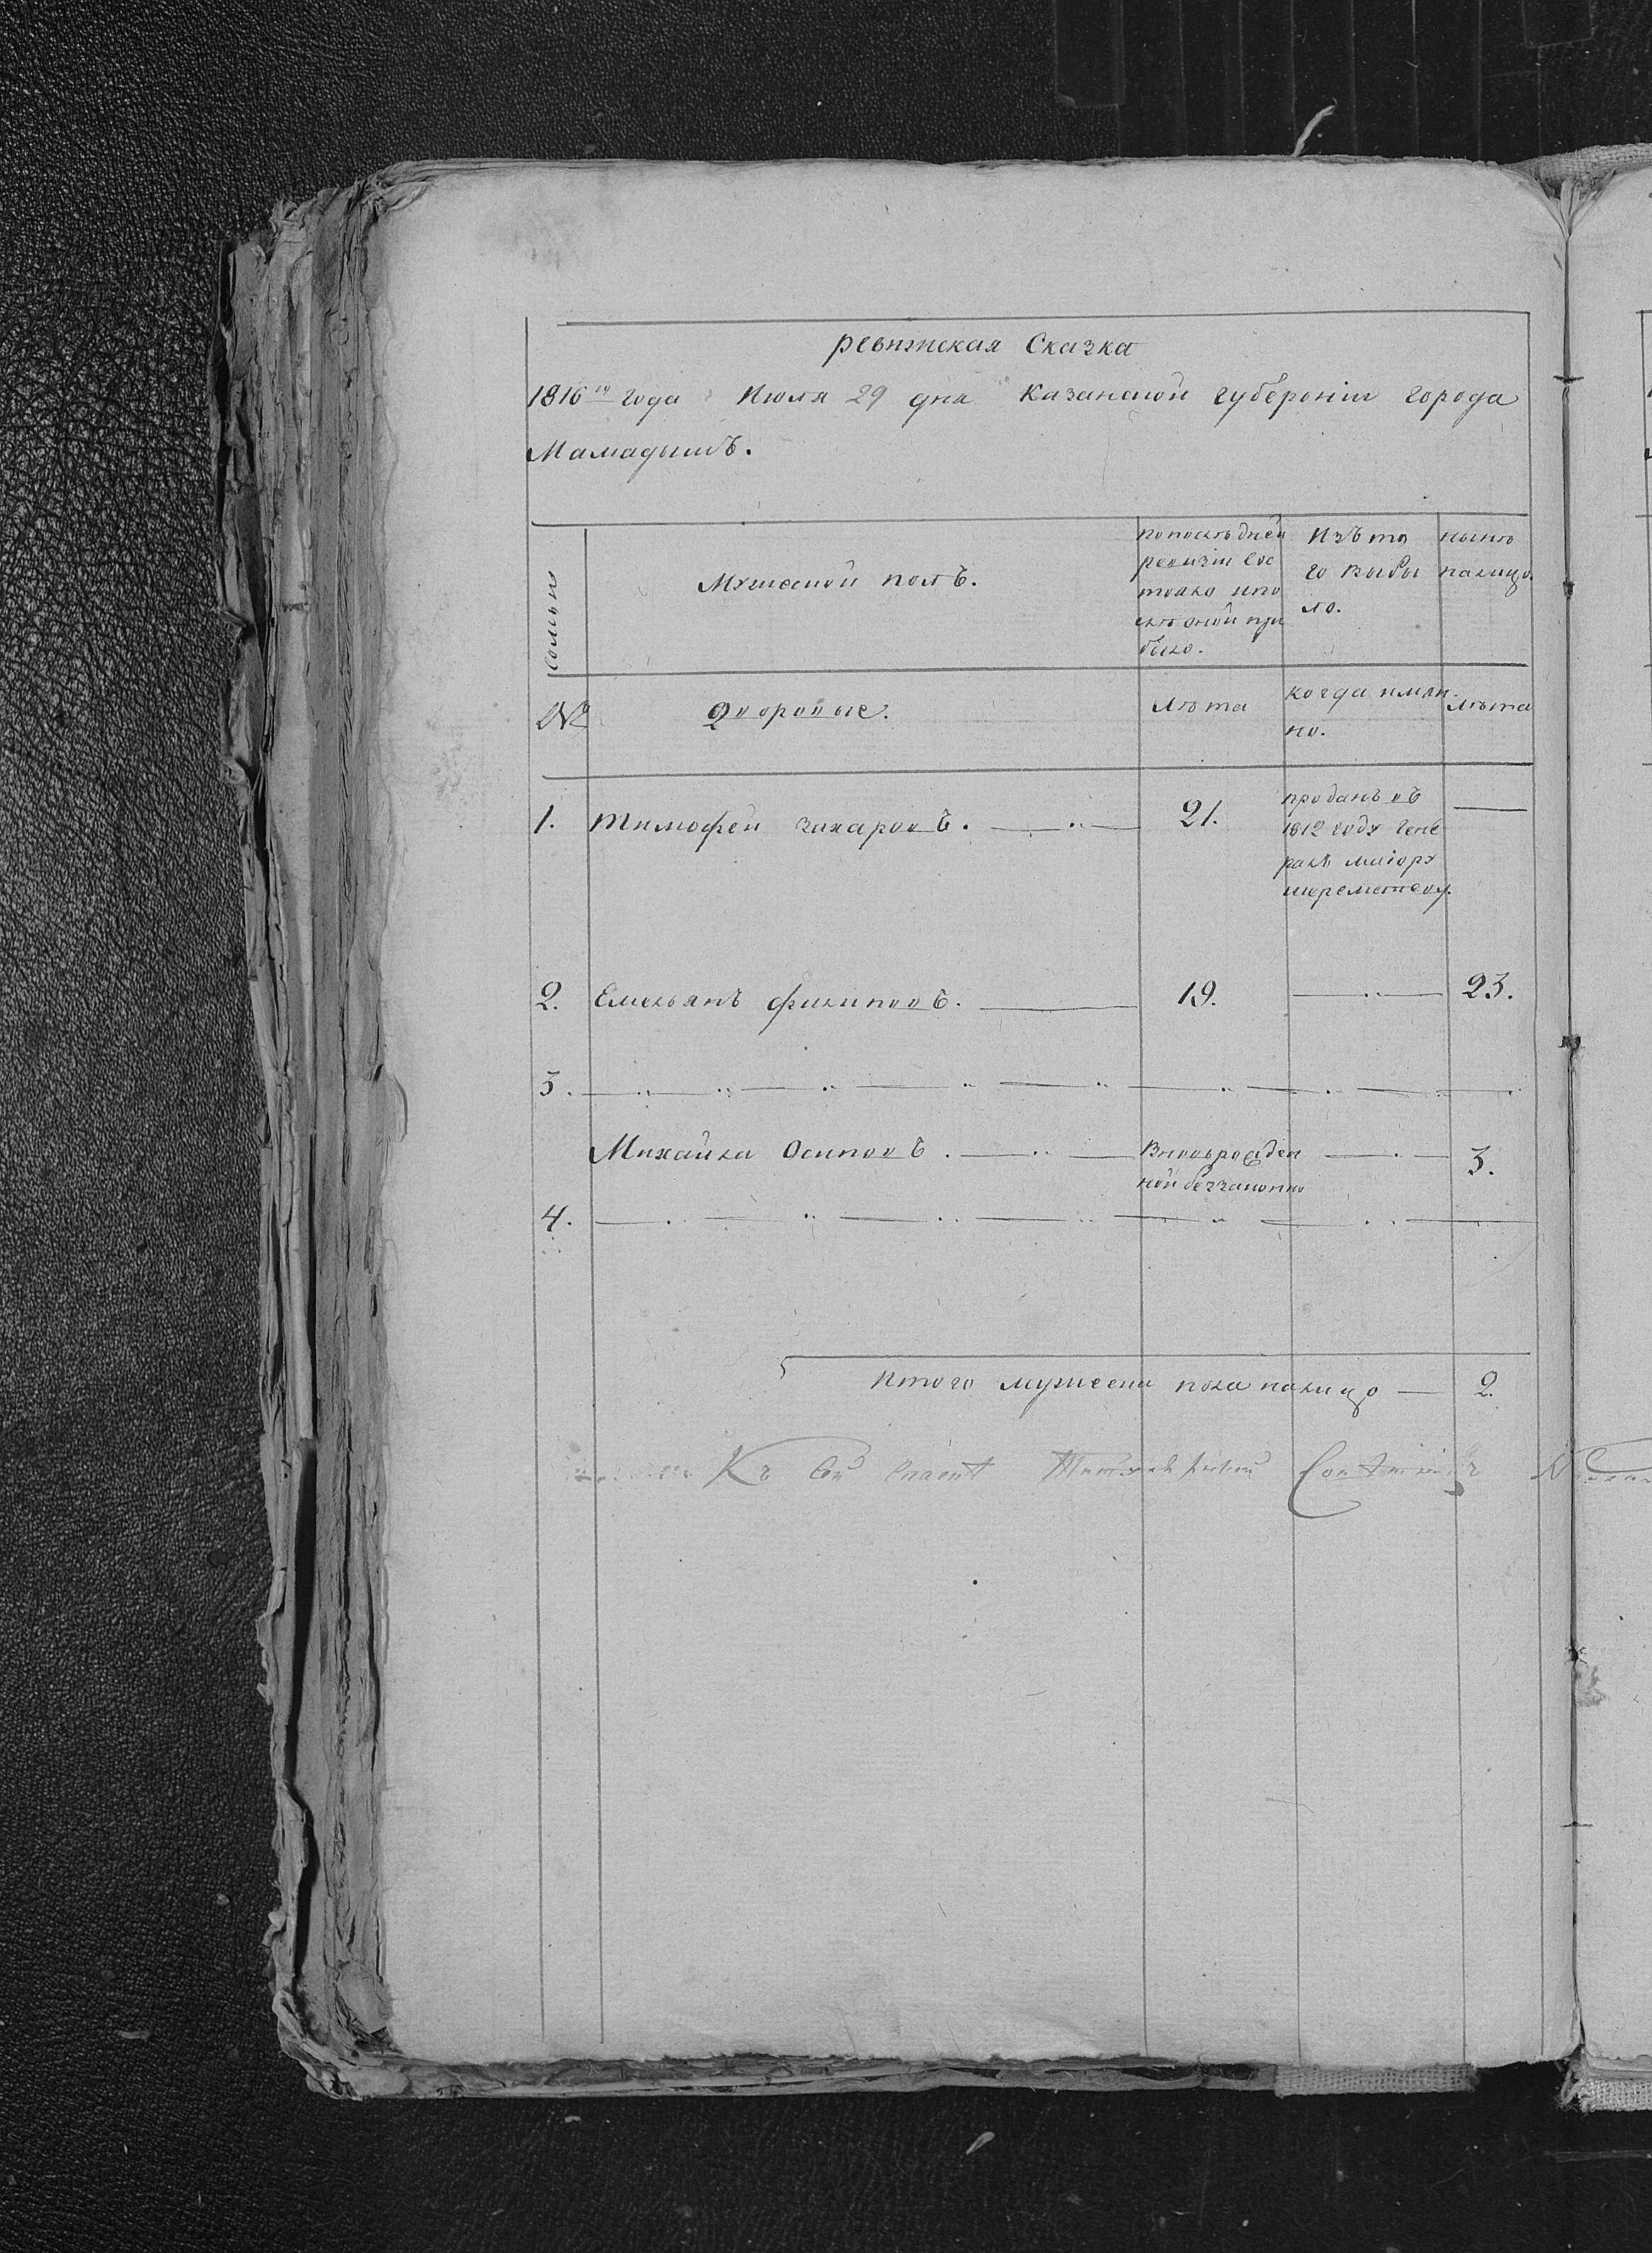 ревижская Сказка
1816го года Июля 29 дня Казанской губерніи города
Мамадышъ.
Семьи
Мужеской полъ.
попослѣдней
ревизіи сос
тояло ипо
слѣ оной при
было.
Изъ то
го выбы
ло.
нынѣ
налицо.
№
Дворовые.
Лѣта
когда имян
но.
Лѣта
1. Тимофей захаровъ. 21.
проданъ въ
1812 году гене
ралъ маіору
шереметеву.
2. Емельянъ филиповъ. 19. 23.
3.
Михайла Осиповъ. Вновьрожден 3.
ной беззаконно
4.
Итого мужеска пола налицо — 2.
Къ сей